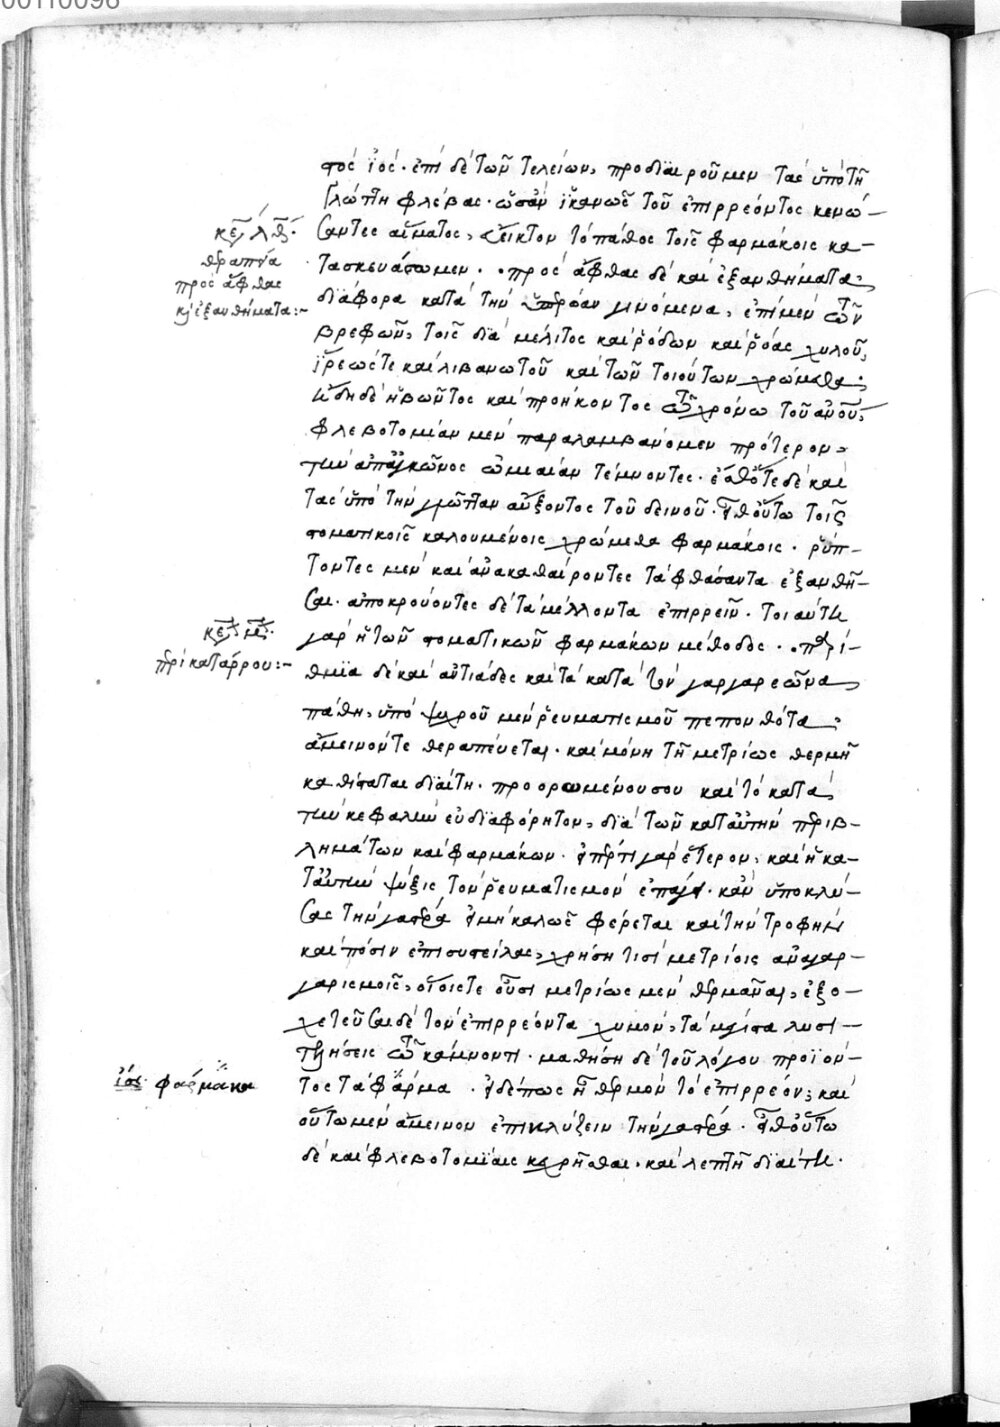 00110098
στος ἰός· ἐπὶ δὲ τῶν τελείων, προδιαιροῦμεν τὰς ὑπὸ τῇ
γλώττῃ φλέβας· ὡς ἂν ἱκανῶς τοῦ ἐπιρρέοντος κενώ-
σαντες αἵματος, εὔεικτον τὸ πάθος τοῖς φαρμάκοις κα-
τασκευάσωμεν. πρὸς ἄφθας δὲ καὶ ἐξανθήματα
διάφορα κατὰ τὴν ὑπερώαν γινόμενα, ἐπὶ μὲν τῶν
βρεφῶν, τοῖς διὰ μέλιτος καὶ ῥόδων καὶ ῥοᾶς χυλοῦ,
ἴρεώς τε καὶ λιβανωτοῦ καὶ τῶν τοιούτων χρώμεθα·
ἤδη δὲ ἡβῶντος καὶ προήκοντος τῷ χρόνῳ τοῦ ἀνου,
φλεβοτομίαν μὲν παραλαμβάνομεν πρότερον,
τὴν ἀπ' ἀγκῶνος ὠμιαίαν τέμνοντες· ἔσθ' ὅτε δὲ καὶ
τὰς ὑπὸ τὴν γλῶτταν αὔξοντος τοῦ δεινοῦ· εἶθ' οὕτω τοῖς
στοματικοῖς καλουμένοις χρώμεθα φαρμάκοις· ῥύπ-
τοντες μὲν καὶ ἀνακαθαίροντες τὰ φθάσαντα ἐξανθῆ-
σαι· ἀποκρούοντες δὲ τὰ μέλλοντα ἐπιρρεῖν· τοιαύτη
γὰρ ἡ τῶν στοματικῶν φαρμάκων μέθοδος. παρί-
σθμια δὲ καὶ ἀντιάδες καὶ τὰ κατὰ τὸν γαργαρεῶνα
πάθη, ὑπὸ ψυχροῦ μὲν ῥευματισμοῦ πεπονθότα
ἄμεινόν τε θεραπεύεται· καὶ μόνῃ τῇ μετρίως θερμῇ
καθίσταται διαίτῃ· προορωμένου σου καὶ τὸ κατὰ
τὴν κεφαλὴν εὐδιαφόρητον, διὰ τῶν κατ' αὐτὴν περιβ-
λημάτων καὶ φαρμάκων· εἴπερ τι γὰρ ἕτερον, καὶ ἡ κα-
τ' αὐτὴν ψύξις τὸν ῥευματισμὸν ἐπάγει· κἂν ὑποκλύ-
σας τὴν γαστέρα εἰ μὴ καλῶς φέρεται καὶ τὴν τροφὴν
καὶ πόσιν ἐπισυστείλας, χρήσῃ τισὶ μετρίοις ἀναγαρ-
γαρισμοῖς, οἵοις τε οὖσι μετρίως μὲν θερμᾶναι, ἐξο-
χετεῦσαι δὲ τὸν ἐπιρρέοντα χυμόν, τὰ μέγιστα λυσι-
τελήσεις τῷ κάμνοντι· μαθήσῃ δὲ τοῦ λόγου προϊόν-
τος τὰ φάρμα. εἰ δέ πως ᾖ θερμὸν τὸ ἐπιρρέον, καὶ
οὕτω μὲν ἄμεινον ἐπικλύζειν τὴν γαστέρα· εἶθ' οὕτω
δὲ καὶ φλεβοτομίαις κεχρῆσθαι· καὶ λεπτῇ διαίτῃ.
θεραπεία
πρὸς ἄφθας
κ ἐξανθήματα:-
περὶ κατάρρου:-
φάρμακα